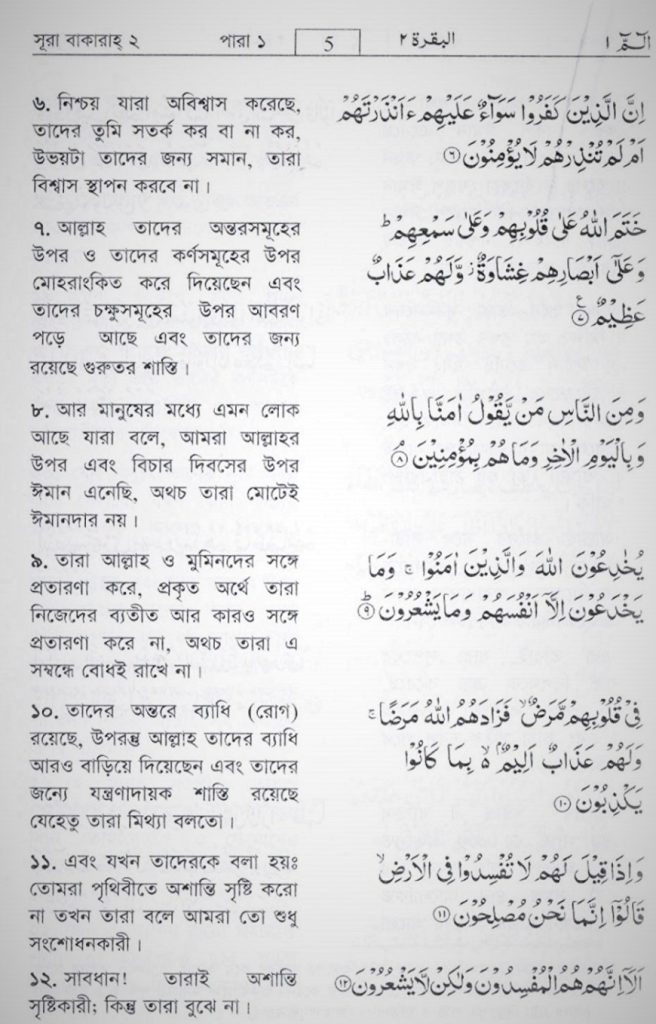 সূরা বাকারাহ্ ২ পারা ১ 5 البقرة ٢ الٓمّٓ ١
৬. নিশ্চয় যারা অবিশ্বাস করেছে,
তাদের তুমি সতর্ক কর বা না কর,
উভয়টা তাদের জন্য সমান, তারা
বিশ্বাস স্থাপন করবে না।
اِنَّ الَّذِيْنَ كَفَرُوْا سَوَآءٌ عَلَيْهِمْ ءَاَنْذَرْتَهُمْ
اَمْ لَمْ تُنْذِرْهُمْ لَا يُؤْمِنُوْنَ ۝٦
৭. আল্লাহ তাদের অন্তরসমূহের
উপর ও তাদের কর্ণসমূহের উপর
মোহরাংকিত করে দিয়েছেন এবং
তাদের চক্ষুসমূহের উপর আবরণ
পড়ে আছে এবং তাদের জন্য
রয়েছে গুরুতর শাস্তি।
خَتَمَ اللهُ عَلٰى قُلُوْبِهِمْ وَعَلٰى سَمْعِهِمْ ؕ
وَعَلٰٓى اَبْصَارِهِمْ غِشَاوَةٌ ز وَّلَهُمْ عَذَابٌ
عَظِيْمٌ ۝٧ ع
৮. আর মানুষের মধ্যে এমন লোক
আছে যারা বলে, আমরা আল্লাহর
উপর এবং বিচার দিবসের উপর
ঈমান এনেছি, অথচ তারা মোটেই
ঈমানদার নয়।
وَمِنَ النَّاسِ مَنْ يَّقُوْلُ اٰمَنَّا بِاللهِ
وَبِالْيَوْمِ الْاٰخِرِ وَمَا هُمْ بِمُؤْمِنِيْنَ ۝٨
৯. তারা আল্লাহ ও মুমিনদের সঙ্গে
প্রতারণা করে, প্রকৃত অর্থে তারা
নিজেদের ব্যতীত আর কারও সঙ্গে
প্রতারণা করে না, অথচ তারা এ
সম্বন্ধে বোধই রাখে না।
يُخٰدِعُوْنَ اللهَ وَالَّذِيْنَ اٰمَنُوْا ۚ وَمَا
يَخْدَعُوْنَ اِلَّآ اَنْفُسَهُمْ وَمَا يَشْعُرُوْنَ ۝٩ؕ
১০. তাদের অন্তরে ব্যাধি (রোগ)
রয়েছে, উপরন্তু আল্লাহ তাদের ব্যাধি
আরও বাড়িয়ে দিয়েছেন এবং তাদের
জন্যে যন্ত্রণাদায়ক শাস্তি রয়েছে
যেহেতু তারা মিথ্যা বলতো।
فِيْ قُلُوْبِهِمْ مَّرَضٌ ۙ فَزَادَهُمُ اللهُ مَرَضًا ۚ
وَلَهُمْ عَذَابٌ اَلِيْمٌۢ ۙ۬ بِمَا كَانُوْا
يَكْذِبُوْنَ ۝١٠
১১. এবং যখন তাদেরকে বলা হয়ঃ
তোমরা পৃথিবীতে অশান্তি সৃষ্টি করো
না তখন তারা বলে আমরা তো শুধু
সংশোধনকারী।
وَاِذَا قِيْلَ لَهُمْ لَا تُفْسِدُوْا فِى الْاَرْضِ ۙ
قَالُوْٓا اِنَّمَا نَحْنُ مُصْلِحُوْنَ ۝١١
১২. সাবধান! তারাই অশান্তি
সৃষ্টিকারী; কিন্তু তারা বুঝে না।
اَلَآ اِنَّهُمْ هُمُ الْمُفْسِدُوْنَ وَلٰكِنْ لَّا يَشْعُرُوْنَ ۝١٢